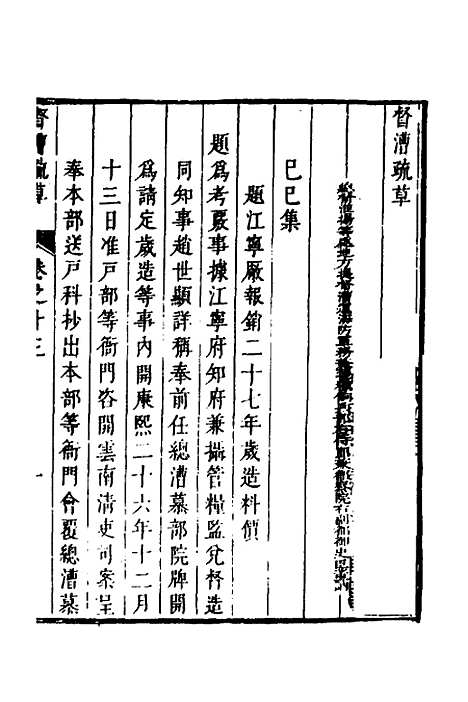 督漕疏草
巳巳集
題江寧厰報銷二十七年歲造料價
題爲考覈事據江寧府知府兼攝管糧監兌督造
同知事趙世顯詳稱奉前任總漕慕部院牌開
爲請定歲造等事內開康熙二十六年十二月
十三日准戶部等衙門咨開雲南清吏司案呈
奉本部送戶科抄出本部等衙門會覆總漕慕
督漕疏草
卷之十三
一